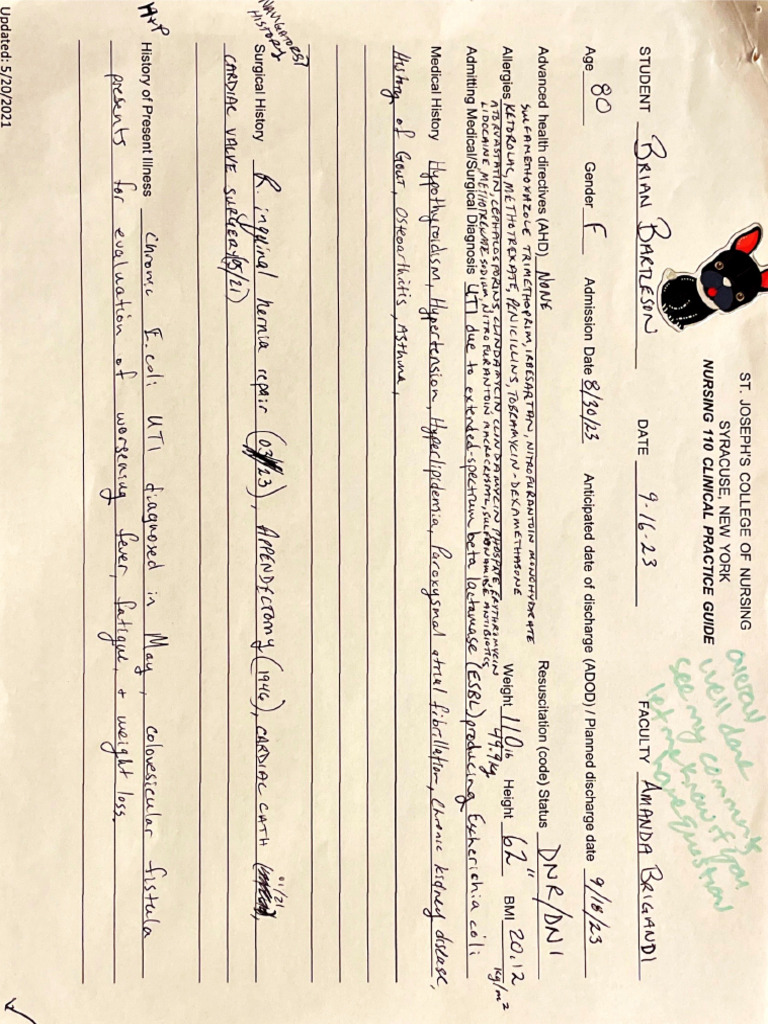 ST. JOSEPH'S COLLEGE OF NURSING
SYRACUSE, NEW YORK
NURSING 110 CLINICAL PRACTICE GUIDE
overall
well done
see my comments
let me know if you
have questions
STUDENT BRIAN BARTLESON DATE 9-16-23 FACULTY AMANDA BRIGANDI
Age 80 Gender F Admission Date 8/30/23 Anticipated date of discharge (ADOD) / Planned discharge date 9/18/23
Advanced health directives (AHD) NONE Resuscitation (code) Status DNR/DNI
SULFAMETHOXAZOLE TRIMETHOPRIM, IRBESARTAN, NITROFURANTOIN MONOHYDRATE
Allergies KETOROLAC, METHOTREXATE, PENICILLINS, TOBRAMYCIN-DEXAMETHASONE Weight 110 lb Height 62" BMI 20.12 kg/m²
49.9 kg
ATORVASTATIN, CEPHALOSPORINS, CLINDAMYCIN, CLINDAMYCIN PHOSPHATE, ERYTHROMYCIN
LIDOCAINE, METHOTREXATE SODIUM, NITROFURANTOIN MACROCRYSTAL, SULFONAMIDE ANTIBIOTICS
Admitting Medical/Surgical Diagnosis UTI due to extended-spectrum beta lactamase (ESBL) producing Escherichia coli
Medical History Hypothyroidism, Hypertension, Hyperlipidemia, Paroxysmal atrial fibrillation, chronic kidney disease,
History of Gout, Osteoarthritis, Asthma,
HISTORY
Surgical History R. inguinal hernia repair (03/23), APPENDECTOMY (1946), CARDIAC CATH 01/21,
CARDIAC VALVE SURGERY (05/21)
H+P
History of Present Illness Chronic E.coli UTI diagnosed in May, colovesicular fistula
presents for evaluation of worsening fever, fatigue, + weight loss.
Updated: 5/20/2021